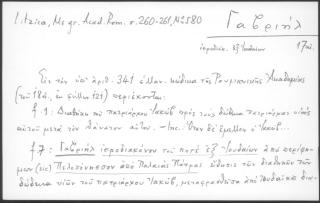 Litzica, Ms gr. Acad. Rom. σ. 260-261, Nº 580
Γαβριήλ
ἱεροδιακ. ἐξ Ἰουδαίων 17 αἰ.
Εἰς τὸν ὑπ' ἀριθ. 341 ἑλλην. κώδικα τῆς Ρουμανικῆς Ἀκαδημίας
(τοῦ 18 αἰ., ἐκ φύλλων 121) περιέχονται
f. 1: Διαθῆκαι τοῦ πατριάρχου Ἰακὼβ πρὸς τοὺς δώδεκα πατριάρχας υἱοὺς
αὐτοῦ μετὰ τὸν θάνατον αὐτοῦ. - Inc. Ὅταν δὲ ἔμελλεν ὁ Ἰακὼβ...
f. 7: Γαβριὴλ ἱεροδιακόνου τοῦ ποτὲ ἐξ Ἰουδαίων ἀπὸ
(sic) Πελοπόννησον ἀπὸ Παλαιὰς Πάτρας εἴδησις τῶν διαθηκῶν τῶν
δώδεκα υἱῶν τοῦ πατριάρχου Ἰακώβ, μεταφρασθεῖσα ἀπὸ Ἰουδαϊκὰς